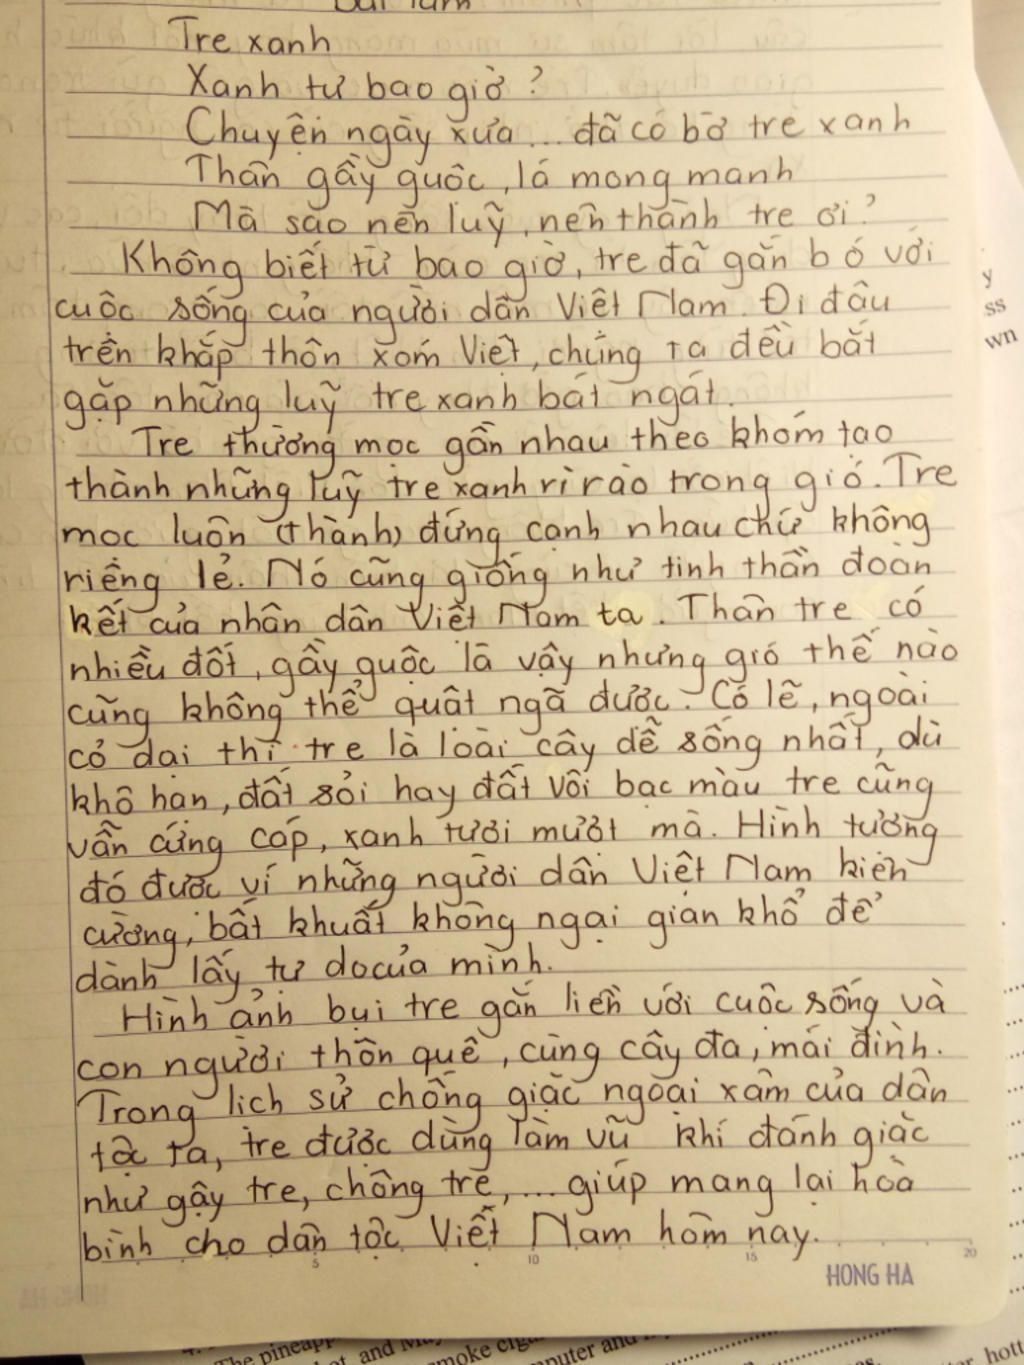 Bài làm
Tre xanh
Xanh tự bao giờ?
Chuyện ngày xưa... đã có bờ tre xanh
Thân gầy guộc, lá mong manh
Mà sao nên luỹ, nên thành tre ơi?
Không biết từ bao giờ, tre đã gắn bó với
cuộc sống của người dân Việt Nam. Đi đâu
trên khắp thôn xóm Việt, chúng ta đều bắt
gặp những luỹ tre xanh bát ngát.
Tre thường mọc gần nhau theo khóm tạo
thành những luỹ tre xanh rì rào trong gió. Tre
mọc luôn (thành) đứng cạnh nhau chứ không
riêng lẻ. Nó cũng giống như tinh thần đoàn
kết của nhân dân Việt Nam ta. Thân tre có
nhiều đốt, gầy guộc là vậy nhưng gió thế nào
cũng không thể quật ngã được. Có lẽ, ngoài
cỏ dại thì tre là loài cây dễ sống nhất, dù
khô hạn, đất sỏi hay đất vôi bạc màu tre cũng
vẫn cứng cáp, xanh tươi mượt mà. Hình tượng
đó được ví những người dân Việt Nam kiên
cường, bất khuất không ngại gian khổ để
dành lấy tự do của mình.
Hình ảnh bụi tre gắn liền với cuộc sống và
con người thôn quê, cùng cây đa, mái đình.
Trong lịch sử chống giặc ngoại xâm của dân
tộc ta, tre được dùng làm vũ khí đánh giặc
như gậy tre, chông tre,... giúp mang lại hoà
bình cho dân tộc Việt Nam hôm nay.
5 10 15 20
HONG HA
y
ss
wn
The
and